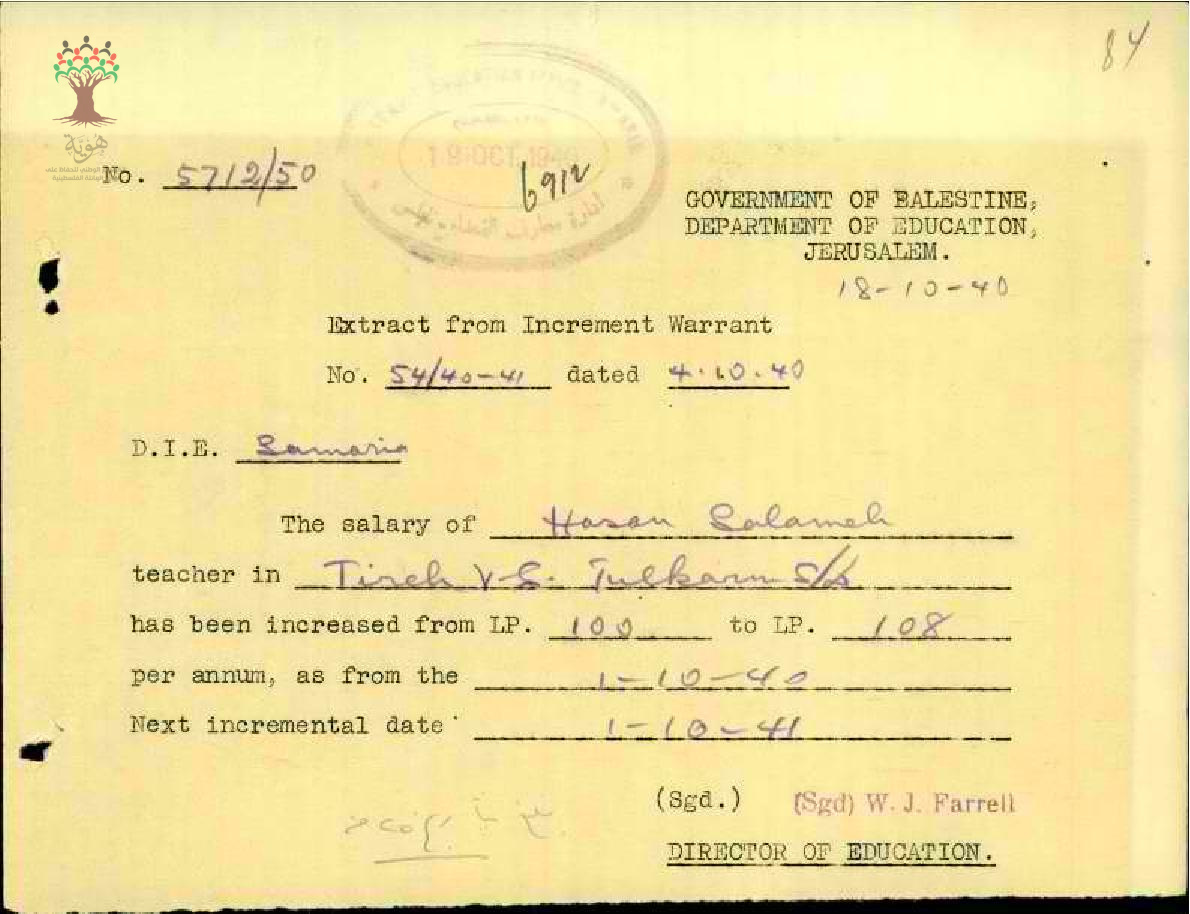 84
هوية
No. 5712/50
19 OCT 1940
6912
GOVERNMENT OF BALESTINE,
DEPARTMENT OF EDUCATION,
JERUSALEM.
18-10-40
Extract from Increment Warrant
No. 54/40-41 dated 4.10.40
D.I.E. Samaria
The salary of Hasan Salameh
teacher in Tireh V-S. Tulkarm S/D
has been increased from LP. 100 to LP. 108
per annum, as from the 1-10-40
Next incremental date 1-10-41
(Sgd.) (Sgd) W. J. Farrell
DIRECTOR OF EDUCATION.